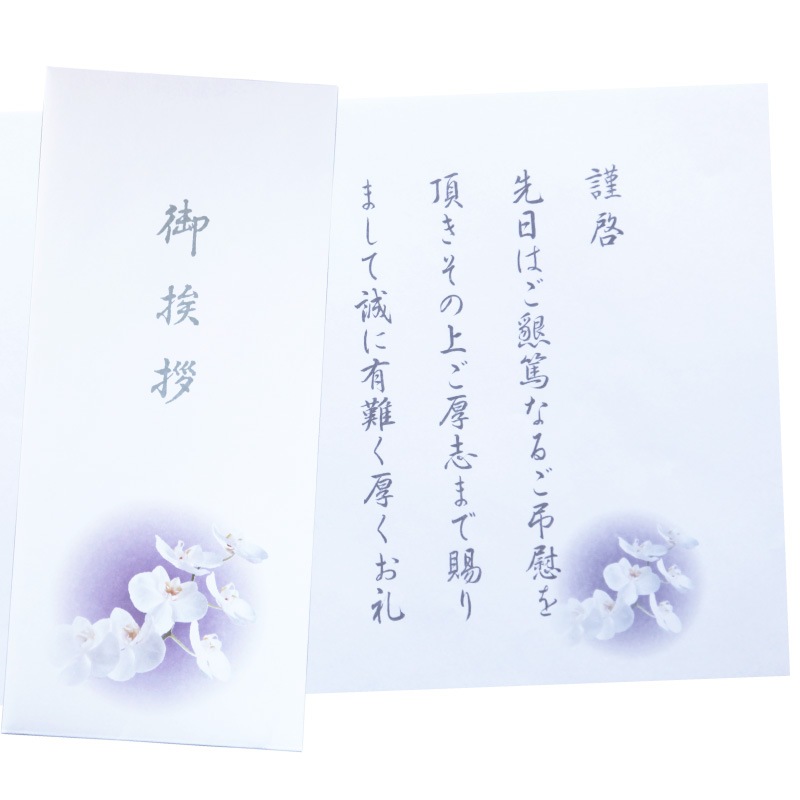 御挨拶
謹啓
先日はご懇篤なるご弔慰を
頂きその上ご厚志まで賜り
まして誠に有難く厚くお礼